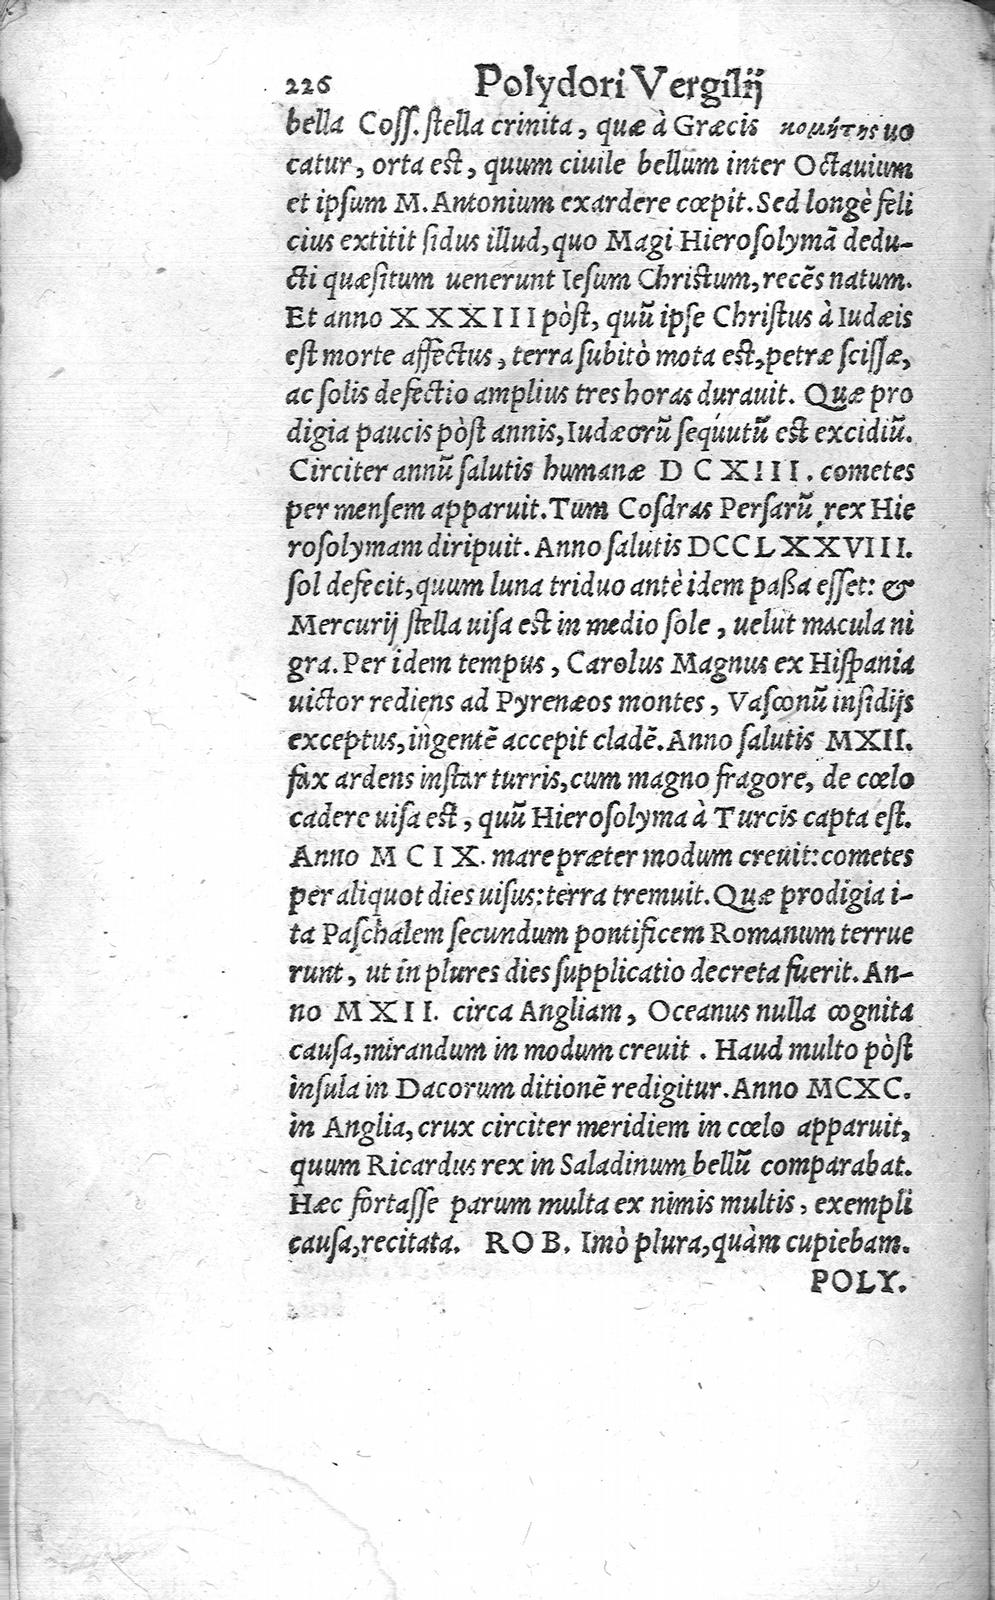 226 Polydori Vergilij
bella Coſſ. ſtella crinita, quæ à Græcis κομήτης uo
catur, orta eſt, quum ciuile bellum inter Octauium
et ipſum M. Antonium exardere cœpit. Sed longè feli
cius extitit ſidus illud, quo Magi Hieroſolymā dedu-
cti quæſitum uenerunt Ieſum Chriſtum, recēs natum.
Et anno XXXIII pòſt, quū ipſe Chriſtus à Iudæis
eſt morte affectus, terra ſubitò mota eſt, petræ ſciſſæ,
ac ſolis defectio amplius tres horas durauit. Quæ pro
digia paucis pòſt annis, Iudæorū ſequutū eſt excidiū.
Circiter annū ſalutis humanæ DCXIII. cometes
per menſem apparuit. Tum Coſdras Perſarū rex Hie
roſolymam diripuit. Anno ſalutis DCCLXXVIII.
ſol defecit, quum luna triduo antè idem paßa eſſet: &
Mercurij ſtella uiſa eſt in medio ſole, uelut macula ni
gra. Per idem tempus, Carolus Magnus ex Hiſpania
uictor rediens ad Pyrenæos montes, Vaſconū inſidijs
exceptus, ingentē accepit cladē. Anno ſalutis MXII.
fax ardens inſtar turris, cum magno fragore, de cœlo
cadere uiſa eſt, quū Hieroſolyma à Turcis capta eſt.
Anno MCIX. mare præter modum creuit: cometes
per aliquot dies uiſus: terra tremuit. Quæ prodigia i-
ta Paſchalem ſecundum pontificem Romanum terrue
runt, ut in plures dies ſupplicatio decreta fuerit. An-
no MXII. circa Angliam, Oceanus nulla cognita
cauſa, mirandum in modum creuit. Haud multo pòſt
inſula in Dacorum ditionē redigitur. Anno MCXC.
in Anglia, crux circiter meridiem in cœlo apparuit,
quum Ricardus rex in Saladinum bellū comparabat.
Hæc fortaſſe parum multa ex nimis multis, exempli
cauſa, recitata. ROB. Imò plura, quàm cupiebam.
POLY.